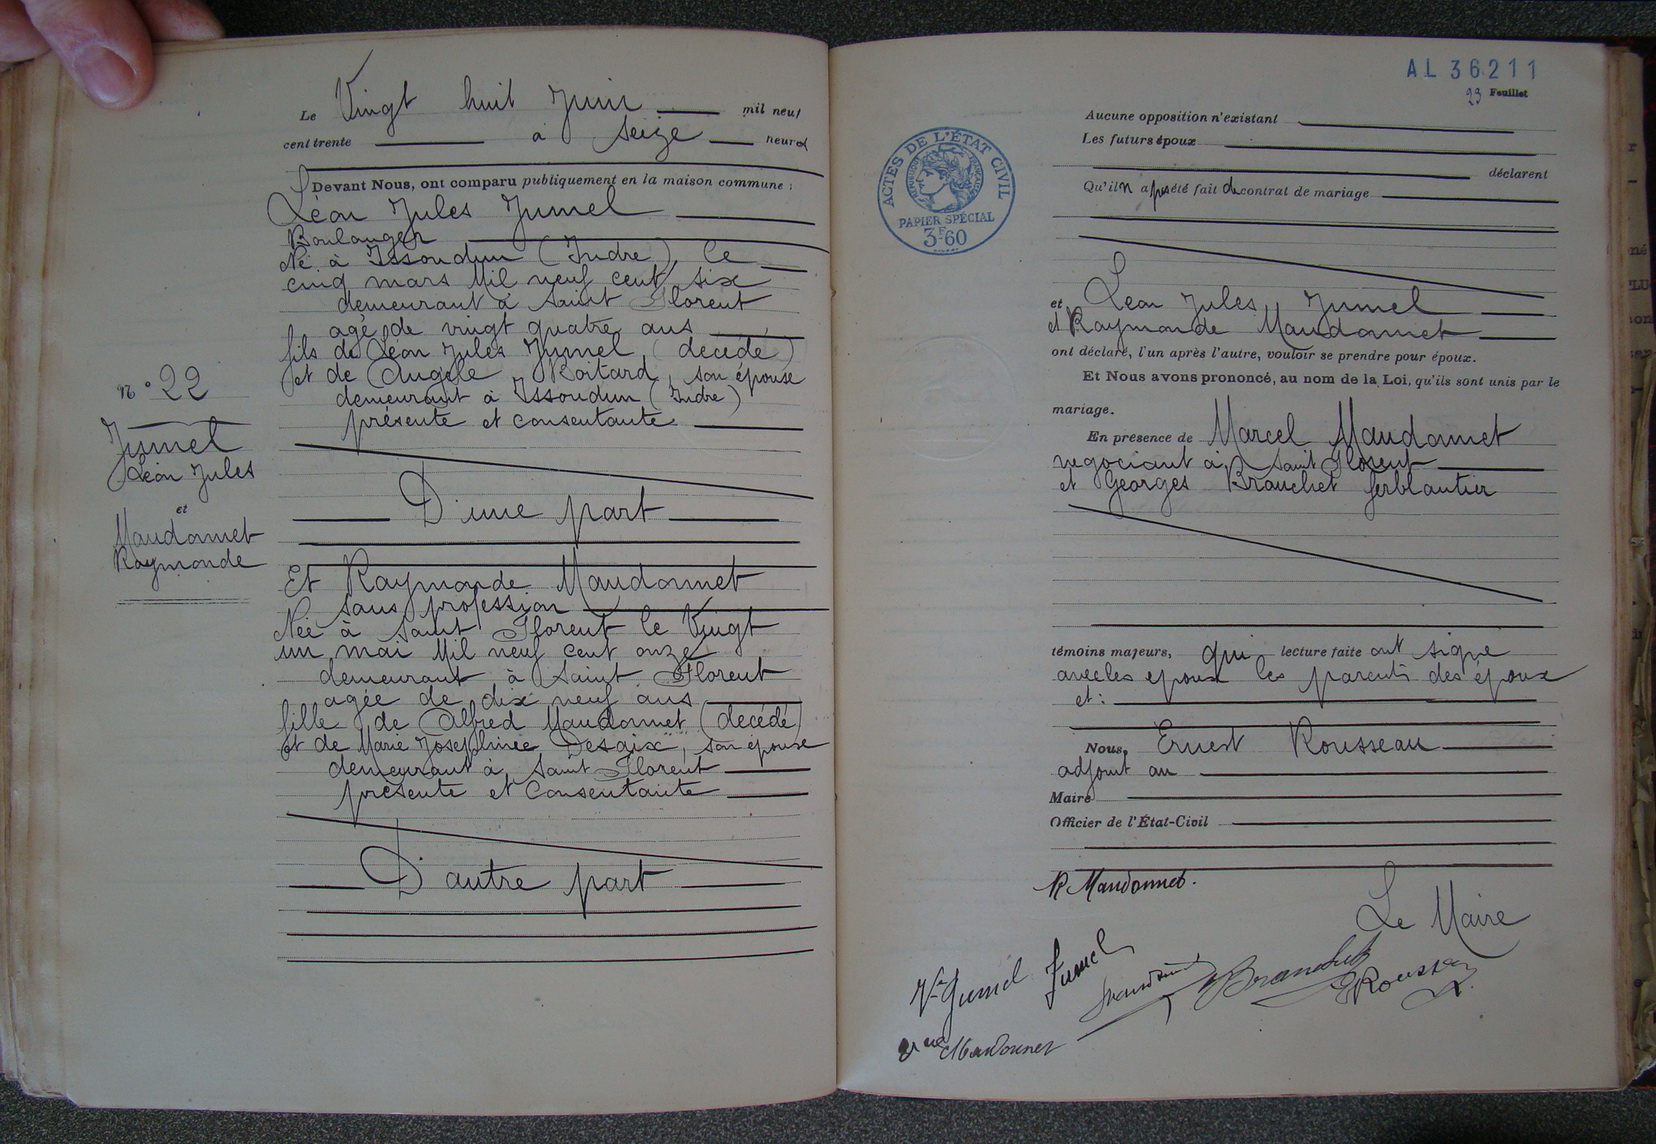 Le Vingt huit Juin mil neuf
cent trente à seize heures
Devant Nous, ont comparu publiquement en la maison commune :
Léon Jules Jumel
Boulanger
Né à Issoudun (Indre), le
cinq mars Mil neuf cent six
demeurant à Saint Florent
agé de vingt quatre ans
fils de Léon Jules Jumel (décédé)
et de Angèle Roitard, son épouse
demeurant à Issoudun (Indre)
présente et consentante
n° 22
Jumel
Léon Jules
et
Maudonnet
Raymonde
D'une part
Et Raymonde Maudonnet
sans profession
Née à Saint Florent le Vingt
un mai Mil neuf cent onze
demeurant à Saint Florent
agée de dix neuf ans
fille de Alfred Maudonnet (décédé)
et de Marie Josephinée Desaix, son épouse
demeurant à Saint Florent
présente et Consentante
D'autre part
AL 36211
23 Feuillet
ACTES DE L'ÉTAT CIVIL
RÉPUBLIQUE FRANÇAISE
PAPIER SPÉCIAL
3F60
Aucune opposition n'existant
Les futurs époux
déclarent
Qu'il n'a pas été fait de contrat de mariage
et Léon Jules Jumel
et Raymonde Maudonnet
ont déclaré, l'un après l'autre, vouloir se prendre pour époux.
Et Nous avons prononcé, au nom de la Loi, qu'ils sont unis par le
mariage.
En présence de Marcel Maudonnet
negociant à Saint Florent
et Georges Brauchet ferblantier
témoins majeurs, qui lecture faite ont signé
avec les époux les parents des époux
et :
Nous, Ernest Rousseau
adjoint au
Maire
Officier de l'État-Civil
R Maudonnet.
Le Maire
Vve Jumel Jumel
Brauchet
ERousseau
Maudonnet